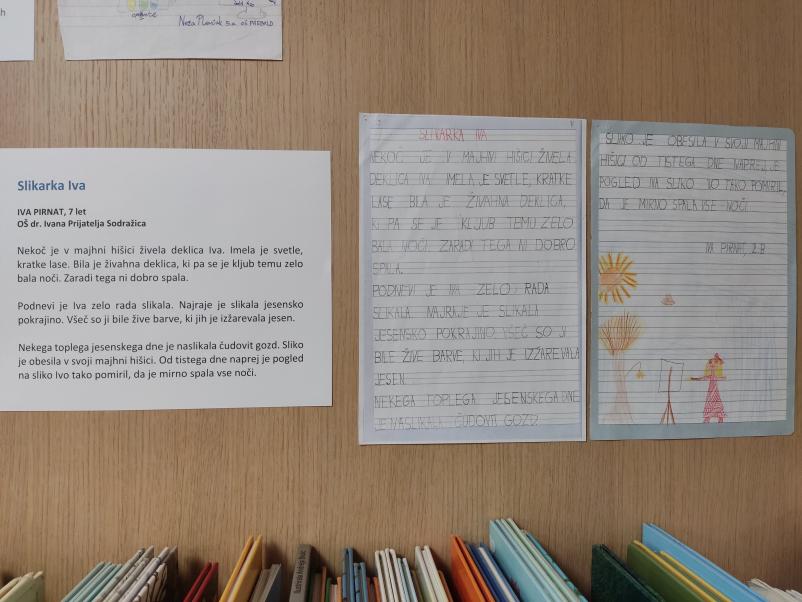 Neža Plavčak 5.a OŠ PREBOLD
Slikarka Iva
IVA PIRNAT, 7 let
OŠ dr. Ivana Prijatelja Sodražica
Nekoč je v majhni hišici živela deklica Iva. Imela je svetle,
kratke lase. Bila je živahna deklica, ki pa se je kljub temu zelo
bala noči. Zaradi tega ni dobro spala.
Podnevi je Iva zelo rada slikala. Najraje je slikala jesensko
pokrajino. Všeč so ji bile žive barve, ki jih je izžarevala jesen.
Nekega toplega jesenskega dne je naslikala čudovit gozd. Sliko
je obesila v svoji majhni hišici. Od tistega dne naprej je pogled
na sliko Ivo tako pomiril, da je mirno spala vse noči.
SLIKARKA IVA
NEKOČ JE V MAJHNI HIŠICI ŽIVELA
DEKLICA IVA. IMELA JE SVETLE, KRATKE
LASE. BILA JE ŽIVAHNA DEKLICA,
KI PA SE JE KLJUB TEMU ZELO
BALA NOČI. ZARADI TEGA NI DOBRO
SPALA.
PODNEVI JE IVA ZELO RADA
SLIKALA. NAJRAJE JE SLIKALA
JESENSKO POKRAJINO. VŠEČ SO JI
BILE ŽIVE BARVE, KI JIH JE IZŽAREVALA
JESEN.
NEKEGA TOPLEGA JESENSKEGA DNE
JE NASLIKALA ČUDOVIT GOZD.
SLIKO JE OBESILA V SVOJI MAJHNI
HIŠICI. OD TISTEGA DNE NAPREJ JE
POGLED NA SLIKO IVO TAKO POMIRIL,
DA JE MIRNO SPALA VSE NOČI.
IVA PIRNAT, 2.B